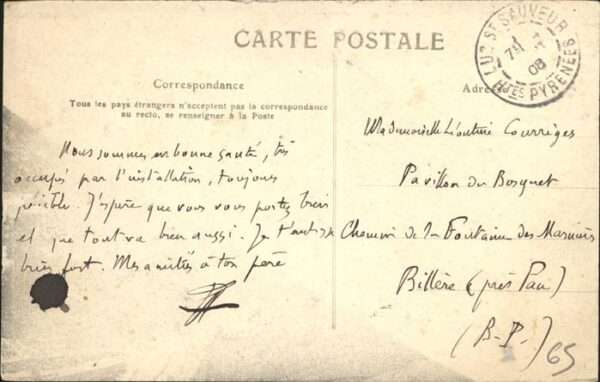 CARTE POSTALE
LUZ ST SAUVEUR
08
HTES PYRENEES
Correspondance
Tous les pays étrangers n'acceptent pas la correspondance
au recto, se renseigner à la Poste
Nous sommes en bonne santé, très
occupés par l'installation, toujours
J'espère que vous vous portez bien
et que tout va bien aussi. Je
bien fort. Mes amitiés à ton père
Mademoiselle Léontine Courrèges
Pavillon du Bosquet
Chemin de la Fontaine des Marnières
Billère (près Pau)
(B-P-)
65